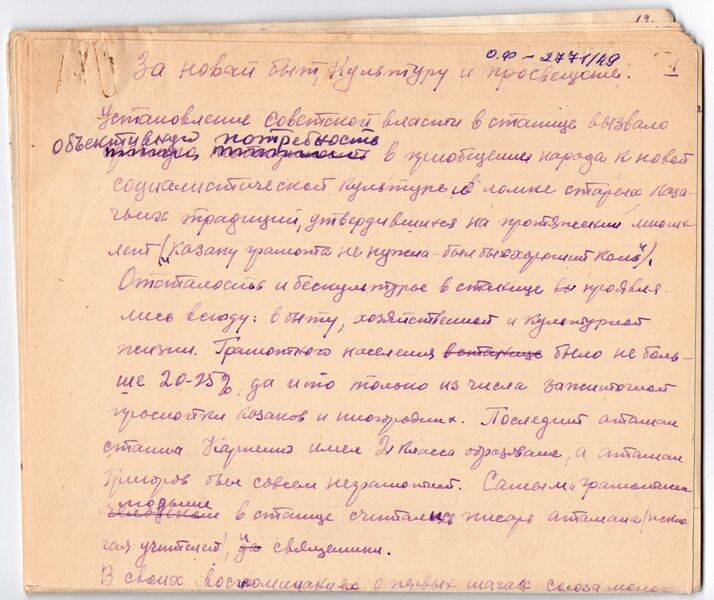 19.
О.Ф – 2771/49
За новый быт, культуру и просвещение.
Установление советской власти в станице вызвало
объективную потребность
в приобщении народа к новой
социалистической культуре и ломке старых каза-
чьих традиций, утвердившихся на протяжении многих
лет („Казаку грамота не нужна – был бы хороший конь").
Отсталость и бескультурье в станице проявля-
лись всюду: в быту, хозяйственной и культурной
жизни. Грамотного населения в станице было не боль-
ше 20-25%, да и то только из числа зажиточной
прослойки казаков и иногородних. Последний атаман
станицы имел 2 класса образования, а атаман
Григоров был совсем неграмотный. Самыми грамотными
людьми
в станице считались писарь атамана (исклю-
чая учителей) и священник.
В своих воспоминаниях о первых шагах союза молод